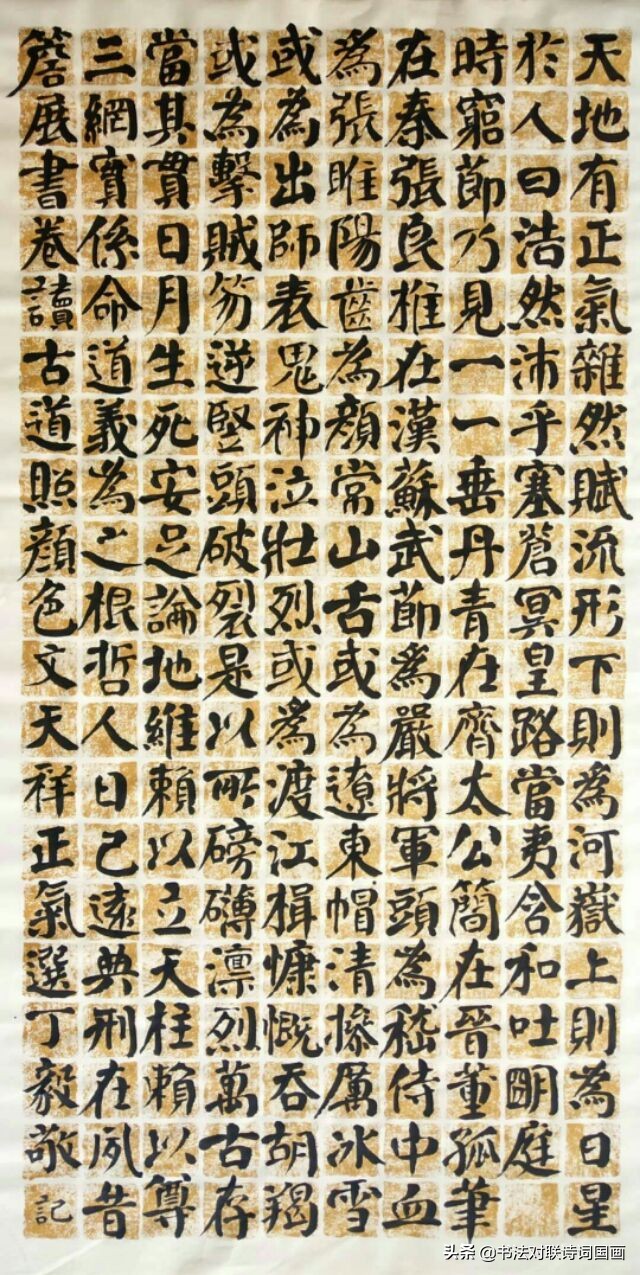 天地有正氣雜然賦流形下則為河嶽上則為日星
於人曰浩然沛乎塞蒼冥皇路當夷含和吐明庭
時窮節乃見一一垂丹青在齊太公簡在晉董孤筆
在秦張良推在漢蘇武節為嚴將軍頭為嵇侍中血
為張睢陽齒為顏常山舌或為遼東帽清操厲冰雪
或為出師表鬼神泣壯烈或為渡江楫慷慨吞胡羯
或為擊賊笏逆豎頭破裂是以所磅礴凛烈萬古存
當其貫日月生死安足論地維賴以立天柱賴以尊
三網實係命道義為之根哲人日已遠典刑在夙昔
簷展書卷讀古道照顏色文天祥正氣選丁毅敬記
头条 @书法对联诗词国画